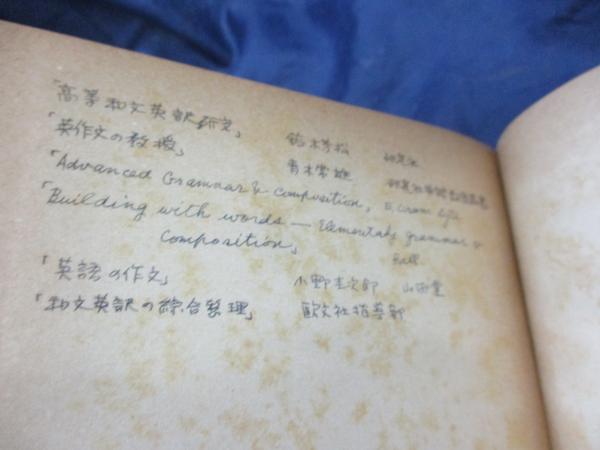 「高等和文英訳研究」 鈴木芳松 研究社
「英作文の教授」 青木常雄 研究社英語教育叢書
「Advanced Grammar & Composition, E,
「Building with words — Elementary grammar &
Composition」 Ball
「英語の作文」 小野圭次郎 山海堂
「和文英訳の綜合整理」 歐文社指導部